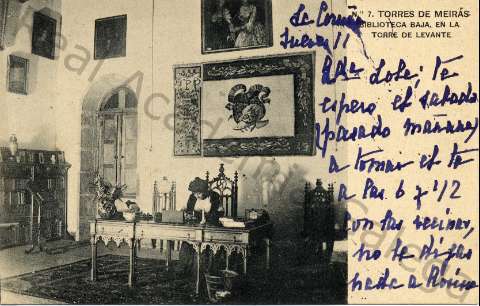 Nº 7. TORRES DE MEIRÁS
BIBLIOTECA BAJA, EN LA
TORRE DE LEVANTE
La Coruña
Jueves 11
Lola; te
espero el sabado
(pasado mañana)
a tomar el te
a las 6 y 1/2
con las vecinas,
no le digas
nada a
Real Academia Galega